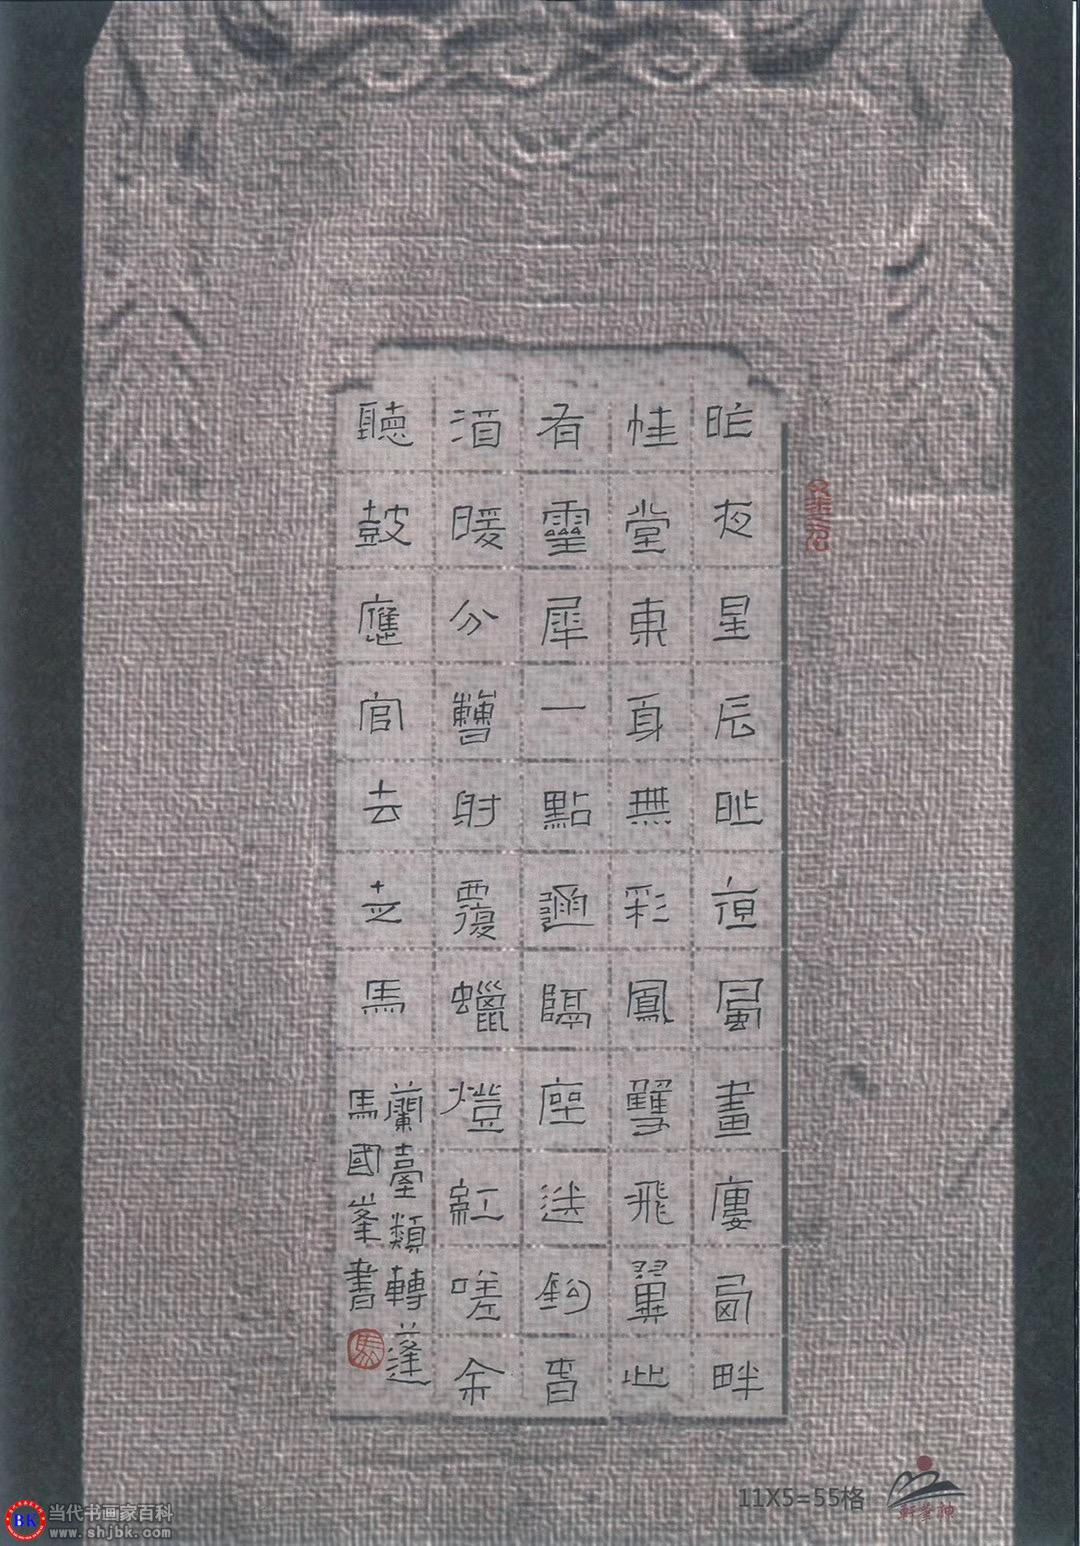 昨夜星辰昨夜風畫樓西畔
桂堂東身無彩鳳雙飛翼心
有靈犀一點通隔座送鉤春
酒暖分曹射覆蠟燈紅嗟余
聽鼓應官去走馬
蘭臺類轉蓬
馬國峯書
馬
11X5=55格
BK
当代书画家百科
www.shjbk.com